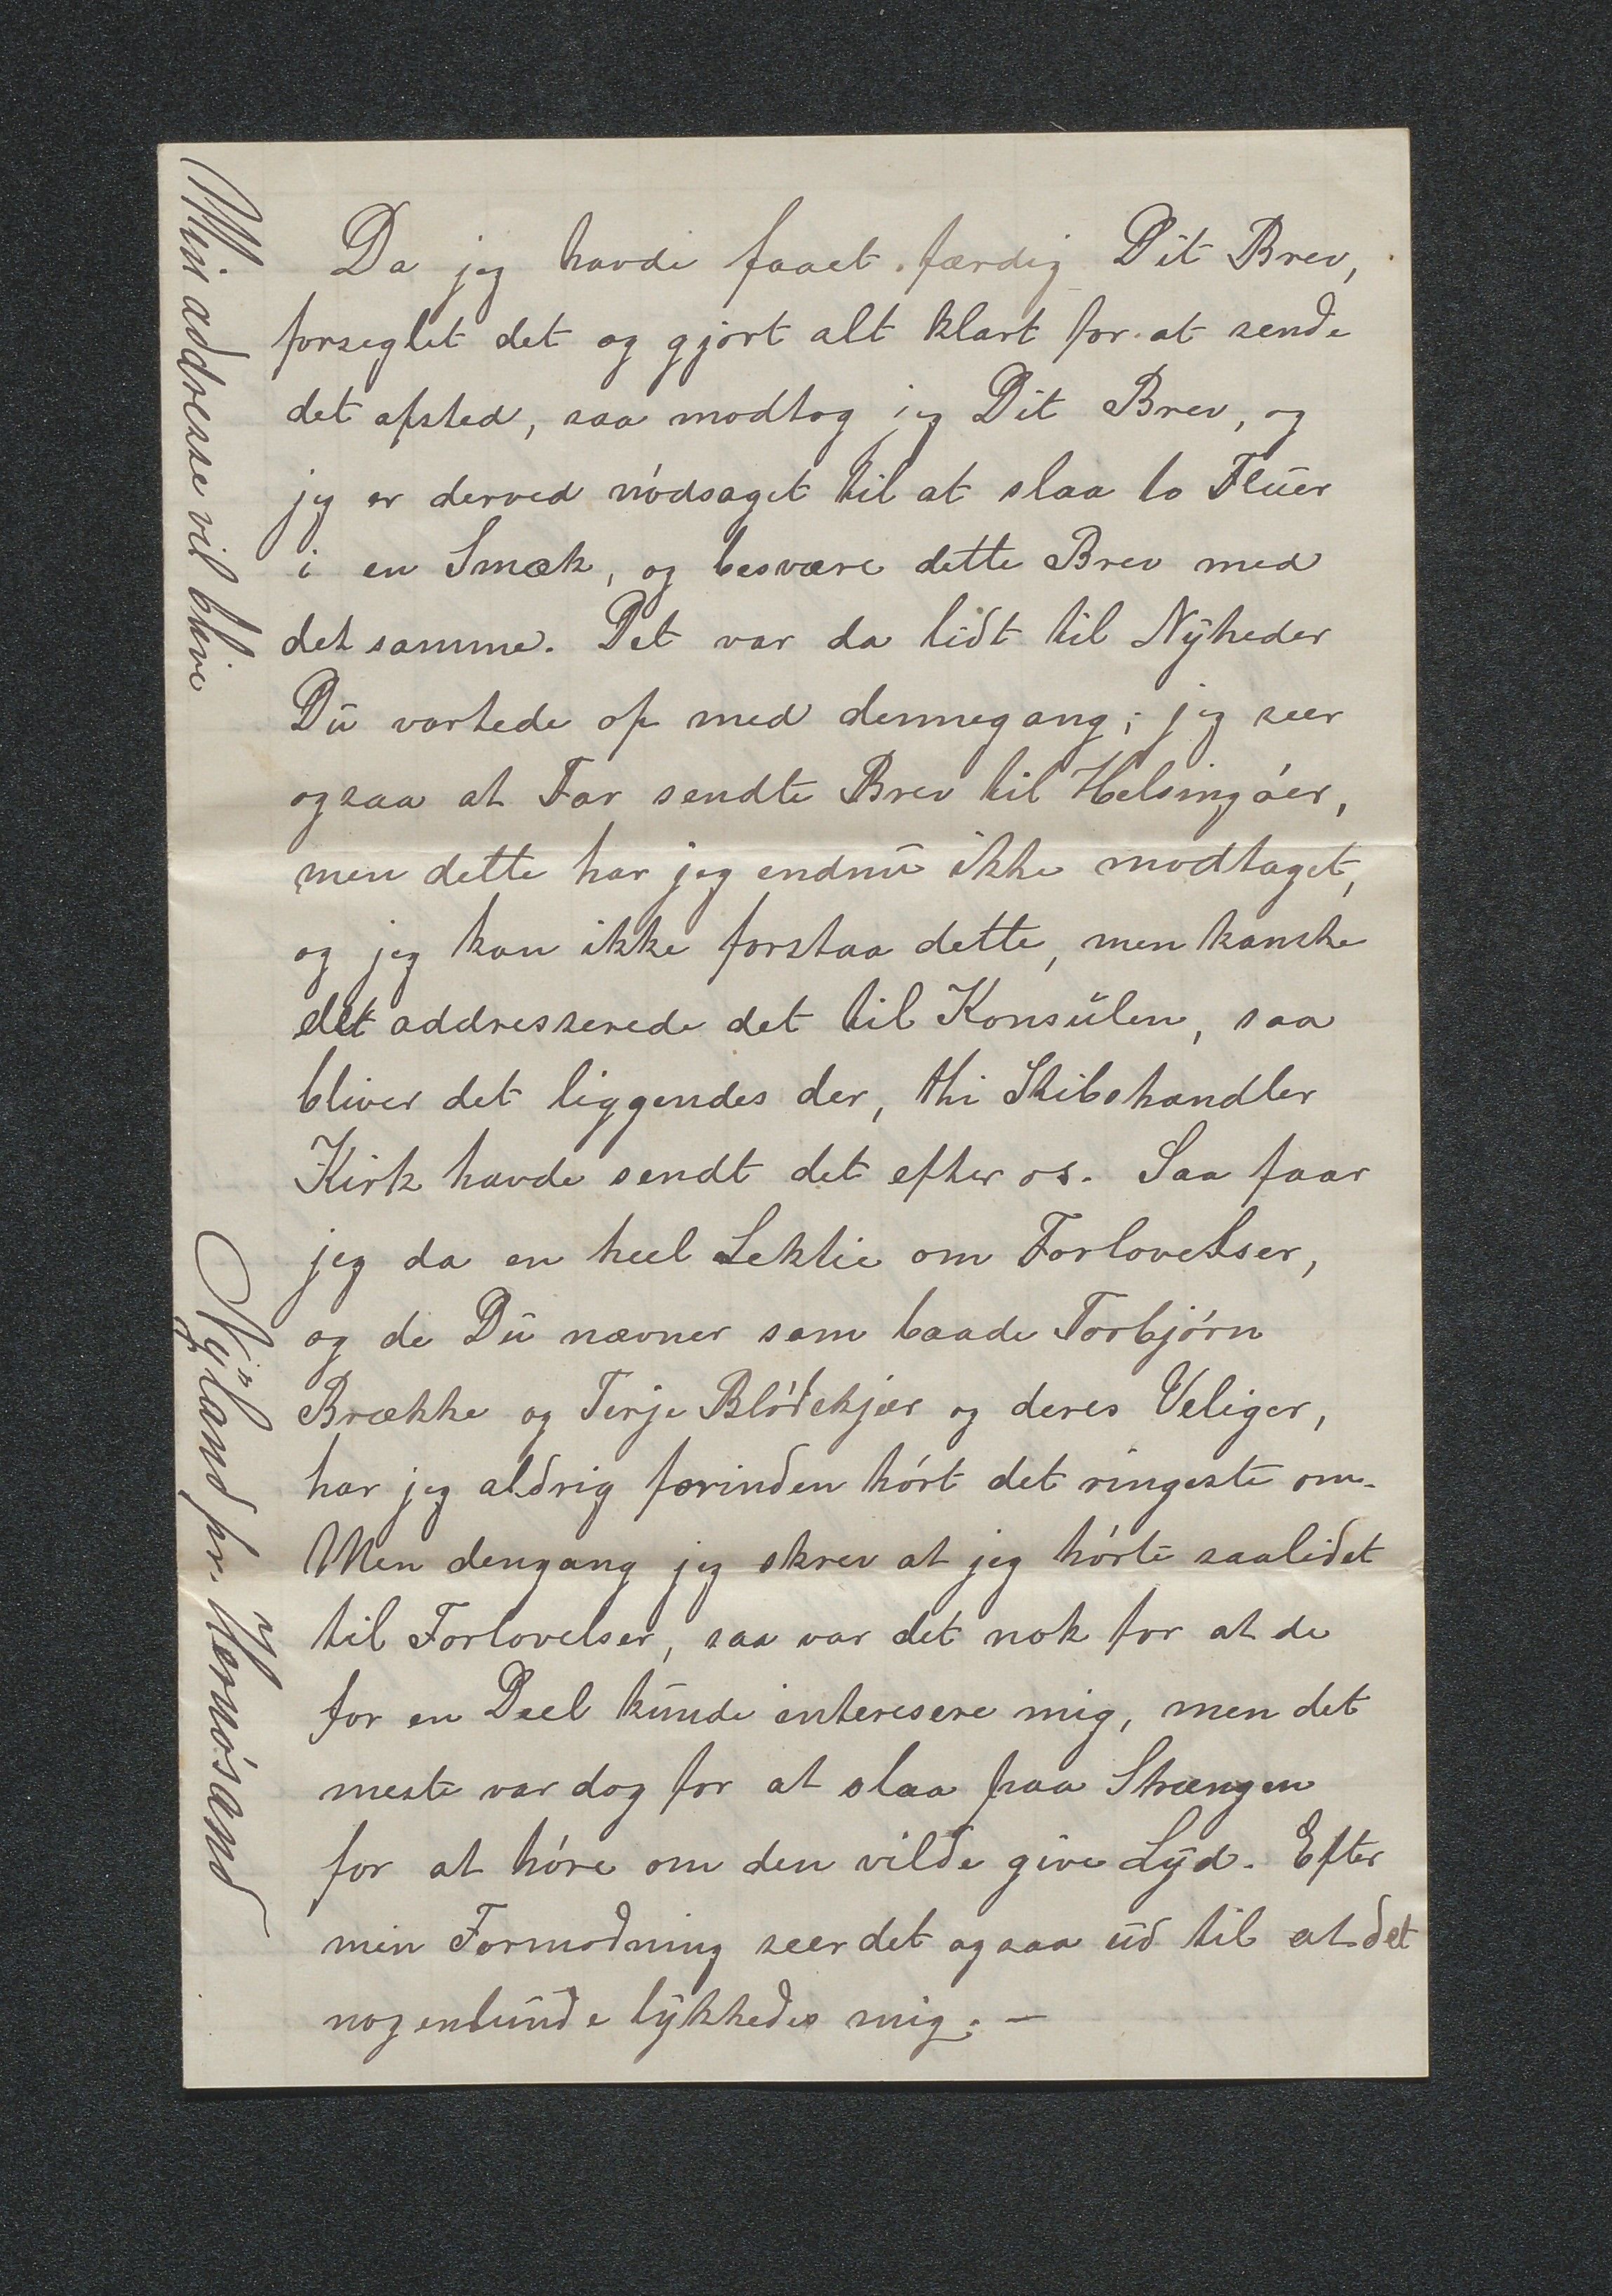 Da jeg havde faaet færdig Dit Brev,
forseglet det og gjørt alt klart for at sende
det afsted, saa modtog jeg Dit Brev, og
jeg er derved nødsaget til at slaa to Fluer
i en Smæk, og besvære dette Brev med
det samme. Det var da lidt til Nyheder
Du vartede op med dennegang; jeg seer
ogsaa at Far sendte Brev til Helsingøer,
men dette har jeg endnu ikke modtaget,
og jeg kan ikke forstaa dette, men kanske
det addresserede det til Konsulen, saa
bliver det liggendes der, thi Skibshandler
Kirk havde sendt det efter os. Saa faar
jeg da en heel Lektie om Forlovelser,
og de Du nævner som baade Torbjørn
Brække og Terje Blødekjær og deres Veliger,
har jeg aldrig forinden hørt det ringeste om.
Men dengang jeg skrev at jeg hørte saalidet
til Forlovelser, saa var det nok for at de
for en Deel kunde interesere mig, men det
meste var dog for at slaa paa Strængen
for at høre om den vilde give Lyd. Efter
min Formodning seer det ogsaa ud til at det
nogenlunde lykkedes mig. —
Min adresse vil blive
Nyland pr. Hernøsand